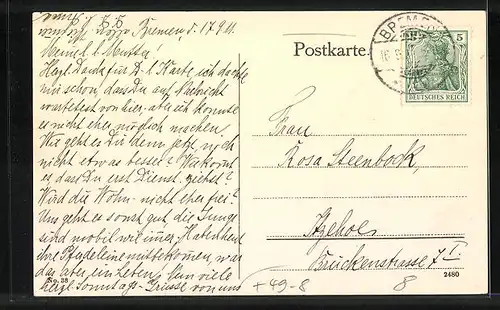 Bremen, d. 17.9.11.
Herzl. Dank für D. l. Karte, ich dachte
mir schon, dass Du auf Nachricht
wartetest von hier, aber ich konnte
es nicht eher möglich machen.
Wie geht es Dir denn jetzt, noch
nicht etwas besser? Wie kommt
es, dass Du erst Dienst. ziehst?
Wird die Wohn. nicht eher frei?
Uns geht es sonst gut, die Jungs
sind mobil wie immer. Haben heut
ihre Spielsachen mitbekommen, war
das aber ein Leben! Nun viele
herzl. Sonntags-Grüsse von uns
No. 38
Postkarte.
BREMEN
5
DEUTSCHES REICH
Frau
Rosa Steenbock,
Itzehoe
Brückenstrasse 7 I.
+49-8
8
2480